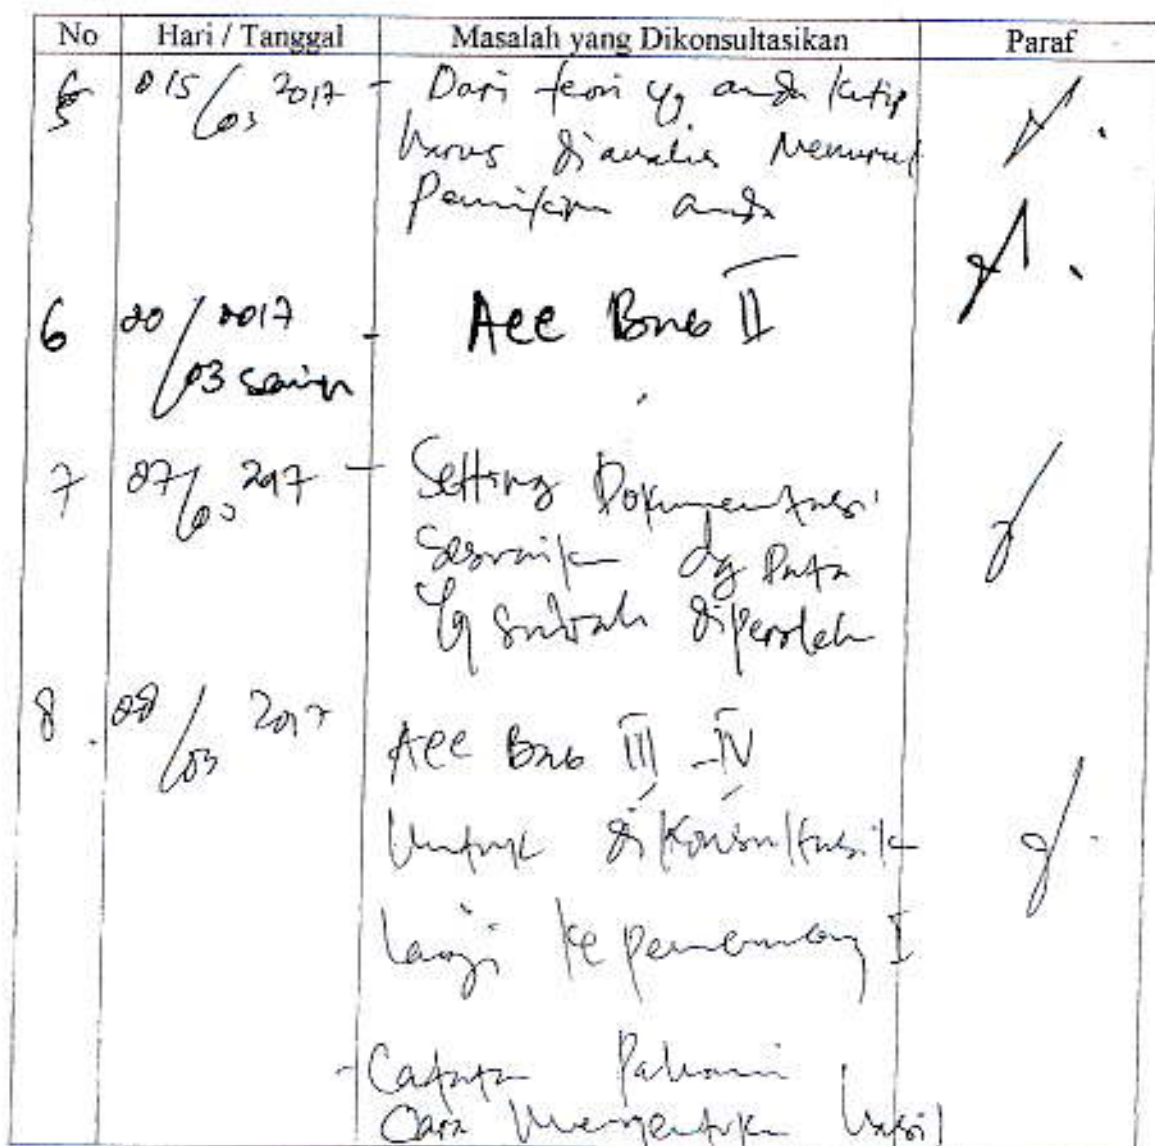 No Hari / Tanggal Masalah yang Dikonsultasikan Paraf
5 015/03 2017 - Dari teori yg anda kutip
harus dianalisis menurut
Pemikiran anda
6 20/03 2017 - Acc Bab II
7 27/03 2017 - Setting Dokumentasi
Sesuaikan dg Data
Yg sudah diperoleh
8. 28/03 2017 Acc Bab III - IV
Untuk dikonsultasik
ke pemembing I
- Catatan Pahami
Cara Menentukan hasil